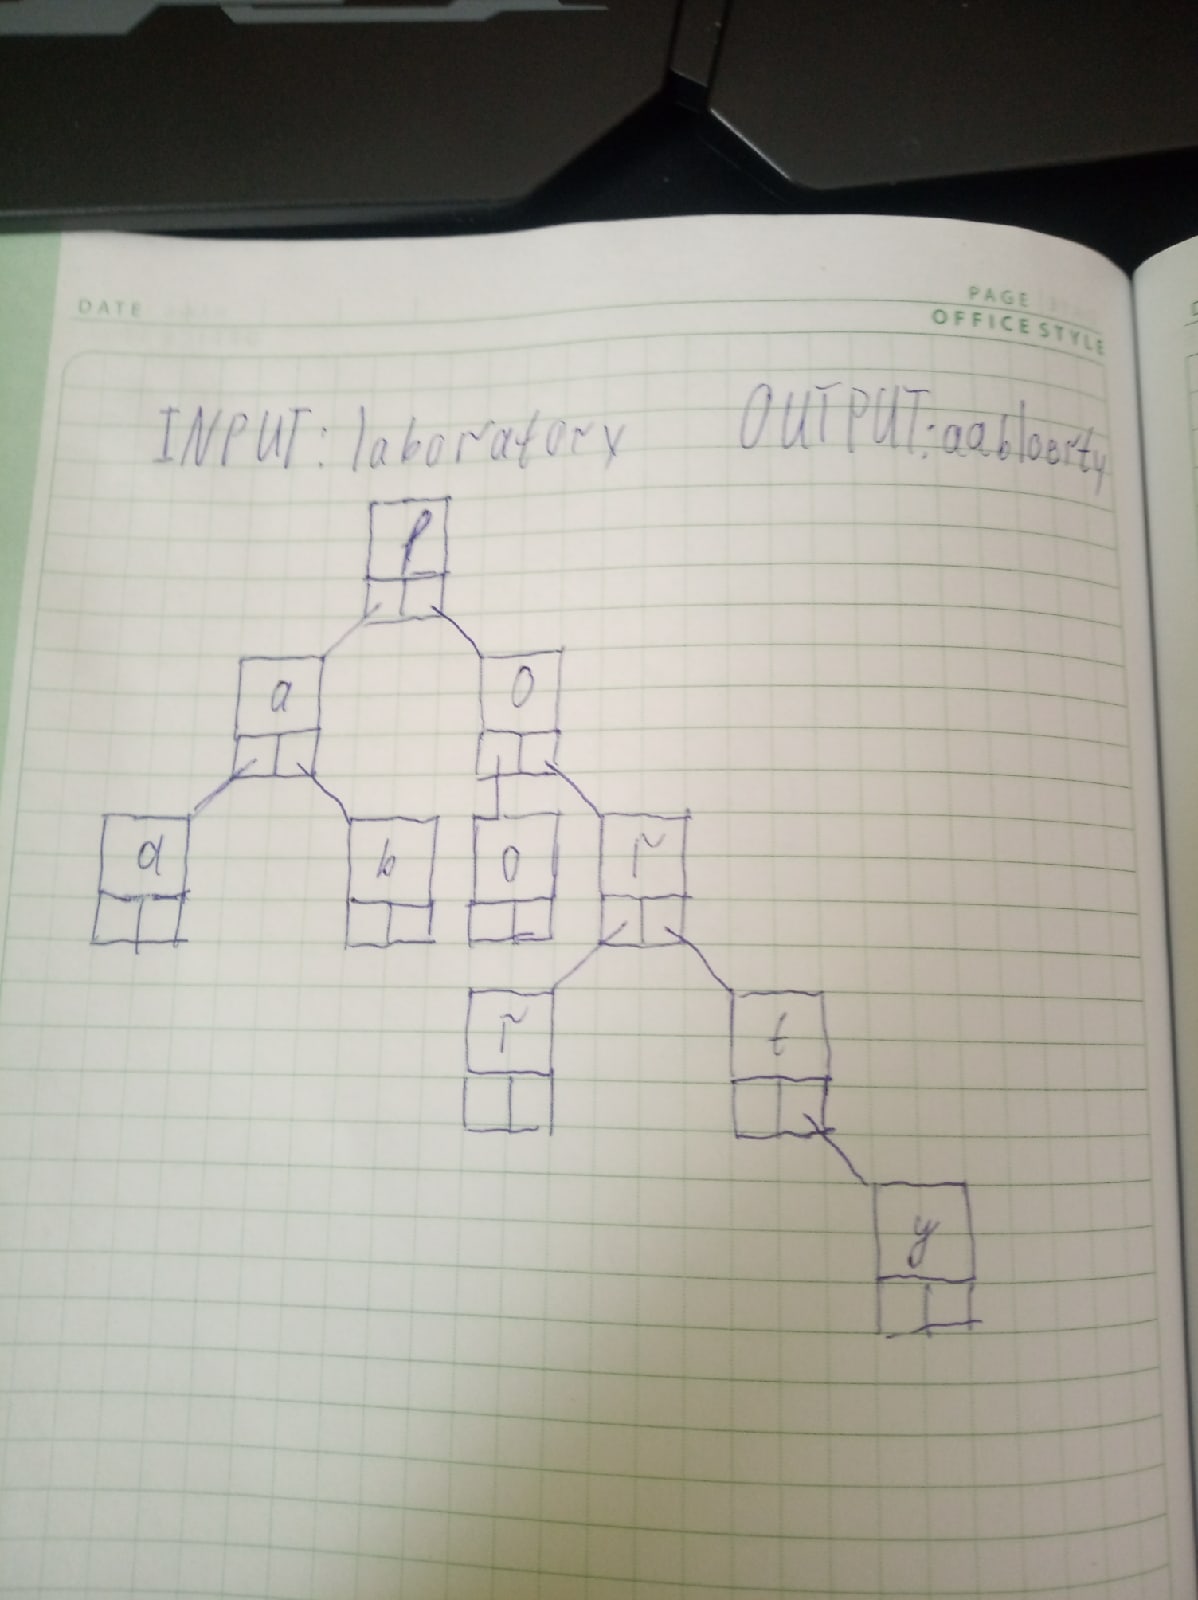 DATE
PAGE
OFFICE STYLE
INPUT: laboratory OUTPUT: aabloorty
l
a o
a b o r
r t
y